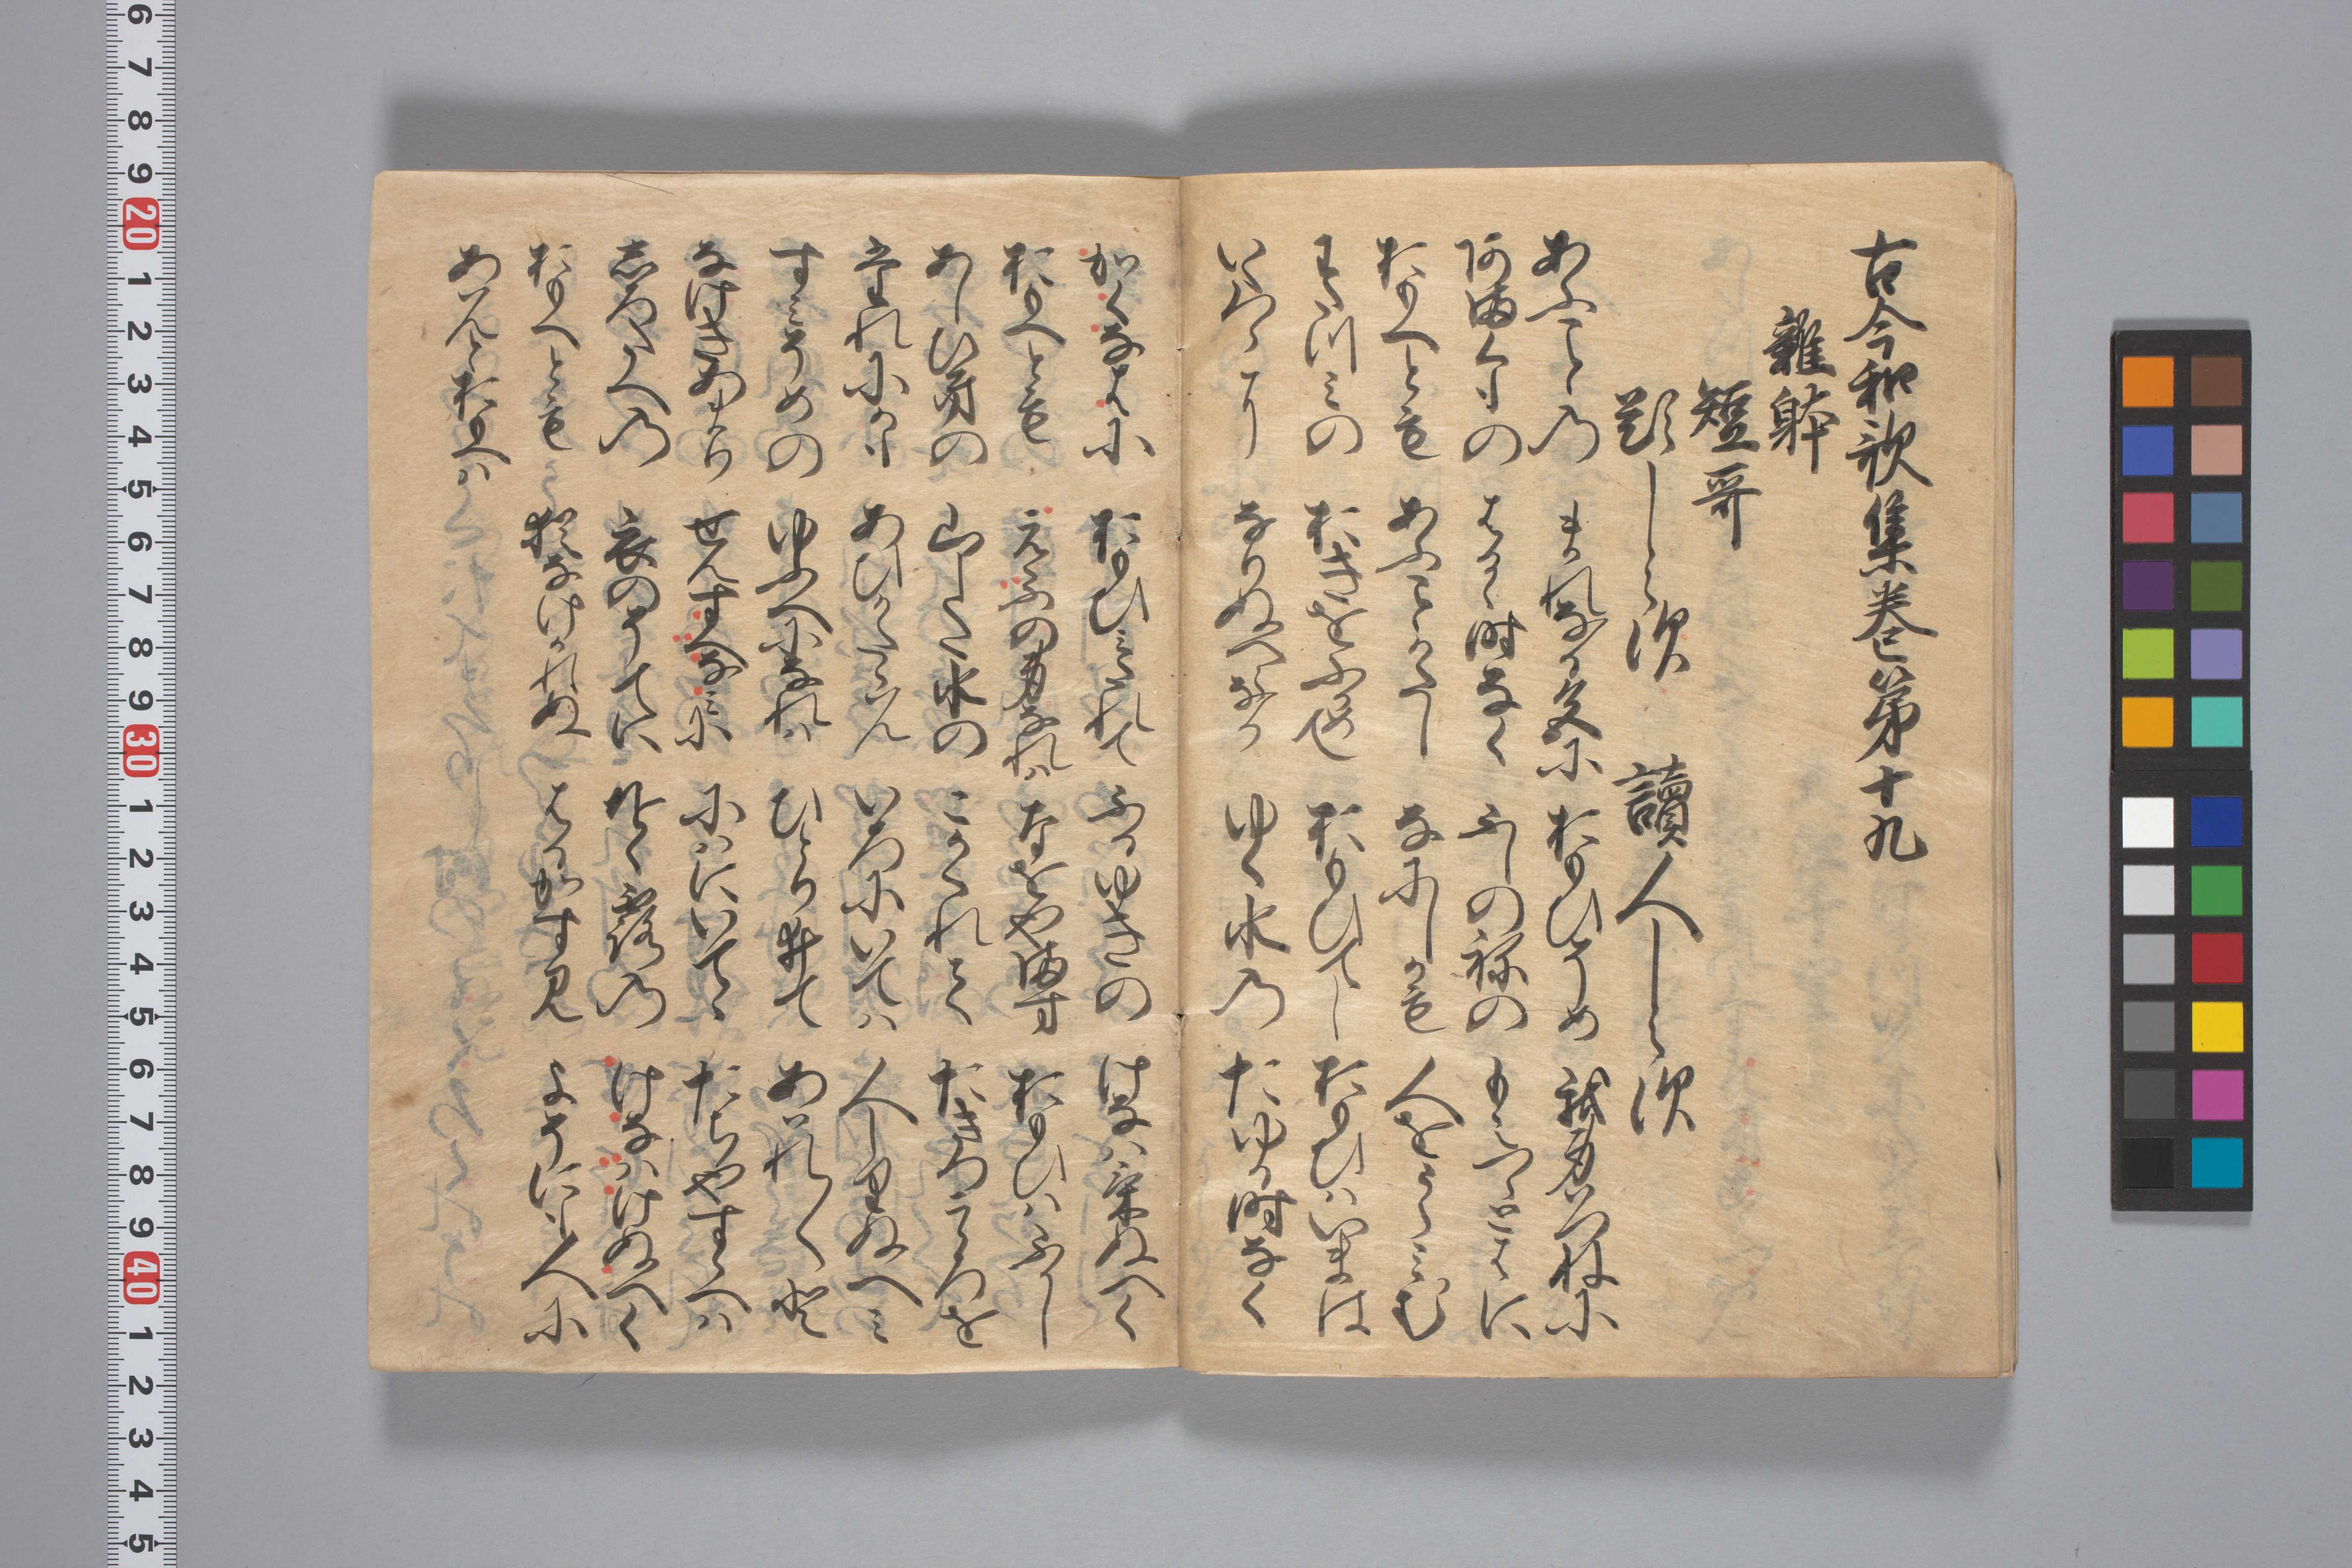 古今和歌集巻第十九
雑躰
短哥
題しらす　讀人しらす
あふことの　まれなる色に　おもひそめ　我身はつねに
あまくもの　はるゝ時なく　ふしの祢の　もえつゝとはに
おもへとも　あふことかたし　なにしかも　人をうらみむ
わたつみの　おきをふかめて　おもひてし　おもひはいまは
いたつらに　なりぬへらなり　ゆく水の　たゆる時なく
かくなわに　おもひみたれて　ふるゆきの　けなはけぬへく
おもへとも　えふの身なれは　なをやます　おもひはふかし
あしひきの　山した水の　こかくれて　たきつこゝろを
たれにかも　あひかたらはん　いろにいては　人しりぬへみ
すみそめの　ゆふへになれは　ひとりゐて　あはれ〳〵と
なけきあまり　せんすへなみに　にはにいてゝ　たちやすらへは
しろたへの　衣のそてに　をく露の　けなはけぬへく
おもへとも　猶なけかれぬ　はるかすみ　よそにも人に
あはんとおもへは